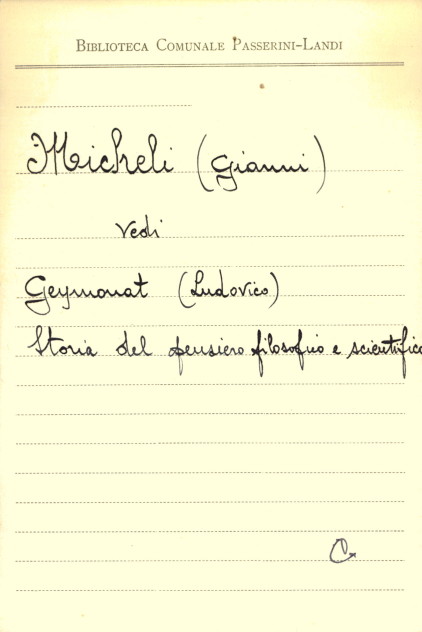 BIBLIOTECA COMUNALE PASSERINI-LANDI
Micheli (Gianni)
Vedi
Geymonat (Ludovico)
Storia del pensiero filosofico e scientifico